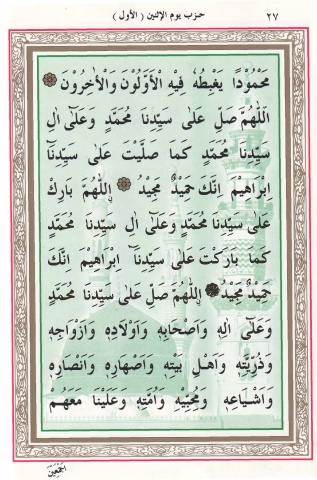 ٢٧ حزب يوم الإثنين ( الأول )
مَحْمُودًا يَغْبِطُهُ فِيهِ الْأَوَّلُونَ وَالْاٰخِرُونَ
اَللّٰهُمَّ صَلِّ عَلٰى سَيِّدِنَا مُحَمَّدٍ وَعَلٰى اٰلِ
سَيِّدِنَا مُحَمَّدٍ كَمَا صَلَّيْتَ عَلٰى سَيِّدِنَا
اِبْرَاهِيمَ اِنَّكَ حَمِيدٌ مَجِيدٌ اَللّٰهُمَّ بَارِكْ
عَلٰى سَيِّدِنَا مُحَمَّدٍ وَعَلٰى اٰلِ سَيِّدِنَا مُحَمَّدٍ
كَمَا بَارَكْتَ عَلٰى سَيِّدِنَا اِبْرَاهِيمَ اِنَّكَ
حَمِيدٌ مَجِيدٌ اَللّٰهُمَّ صَلِّ عَلٰى سَيِّدِنَا مُحَمَّدٍ
وَعَلٰى اٰلِهِ وَاَصْحَابِهِ وَاَوْلَادِهِ وَاَزْوَاجِهِ
وَذُرِّيَّتِهِ وَاَهْلِ بَيْتِهِ وَاَصْهَارِهِ وَاَنْصَارِهِ
وَاَشْيَاعِهِ وَمُحِبِّيهِ وَاُمَّتِهِ وَعَلَيْنَا مَعَهُمْ
اَجْمَعِينَ